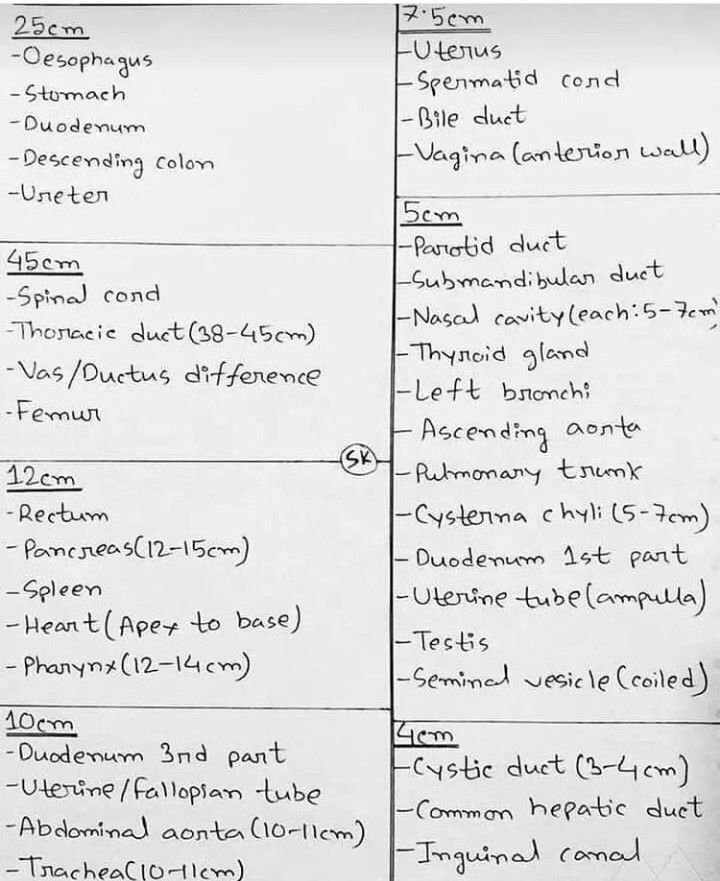 25cm
-Oesophagus
-Stomach
-Duodenum
-Descending colon
-Ureter
45cm
-Spinal cord
-Thoracic duct (38-45cm)
-Vas/Ductus difference
-Femur
SK
12cm
-Rectum
-Pancreas(12-15cm)
-Spleen
-Heart (Apex to base)
-Pharynx(12-14cm)
10cm
-Duodenum 3rd part
-Uterine/Fallopian tube
-Abdominal aorta (10-11cm)
-Trachea(10-11cm)
7.5cm
-Uterus
-Spermatid cord
-Bile duct
-Vagina (anterior wall)
5cm
-Parotid duct
-Submandibular duct
-Nasal cavity (each: 5-7cm)
-Thyroid gland
-Left bronchi
-Ascending aorta
-Pulmonary trunk
-Cysterna chyli (5-7cm)
-Duodenum 1st part
-Uterine tube (ampulla)
-Testis
-Seminal vesicle (coiled)
4cm
-Cystic duct (3-4cm)
-Common hepatic duct
-Inguinal canal